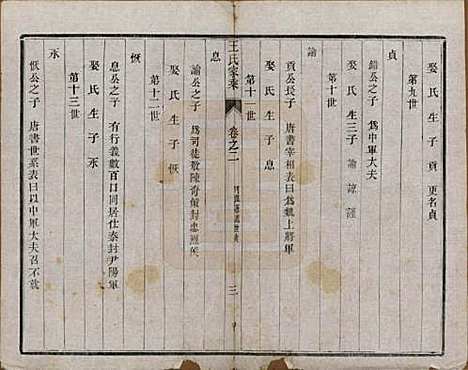 娶 氏 生 子 貢 更名貞
第九世
貞
錯公之子 為中軍大夫
娶 氏 生 三子 諭 諒 謹
第十世
諭
貢公長子 唐書宰相表曰為魏上將軍
娶 氏 生 子 息
第十一世
王氏家乘 卷之二 三
息
諭公之子 為司徒
娶 氏 生 子 恢
第十二世
恢
息公之子 有行義數百口同居仕秦封尹陽軍
娶 氏 生 子 汞
第十三世
汞
恢公之子 唐書世系表曰以中軍大夫召不就